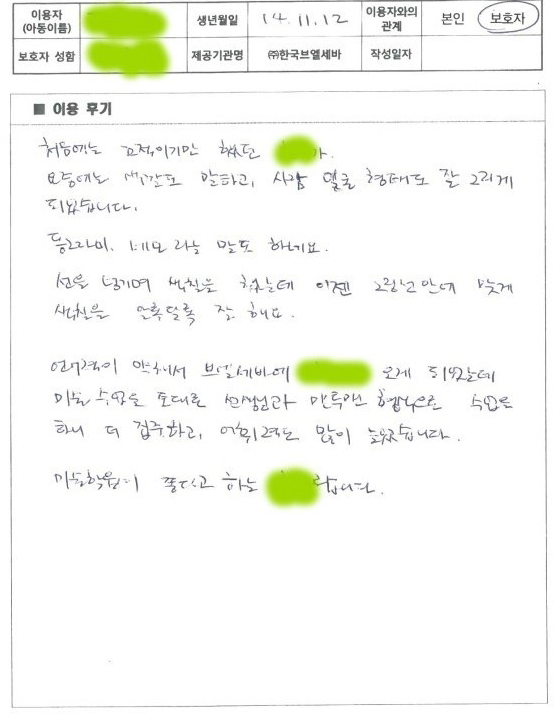 이용자 (아동이름) 생년월일 14.11.12 이용자와의 관계 본인 보호자
보호자 성함 제공기관명 ㈜한국브엘세바 작성일자
■ 이용 후기
처음에는 했던 가
요즘에는 색깔도 말하고, 사람 얼굴 형태도 잘 그리게
되었습니다.
동그라미, 네모 라는 말도 하네요.
선을 넘기며 색칠을 했는데 이젠 안에 맞게
색칠을 알록달록 잘 해요.
언어력이 약해서 브엘세바에 오게 되었는데
미술 수업을 토대로 선생님과 만투맨 형식으로 수업을
하니 더 집중하고, 어휘력도 많이 늘었습니다.
미술학원이 좋다고 하는 랍니다.